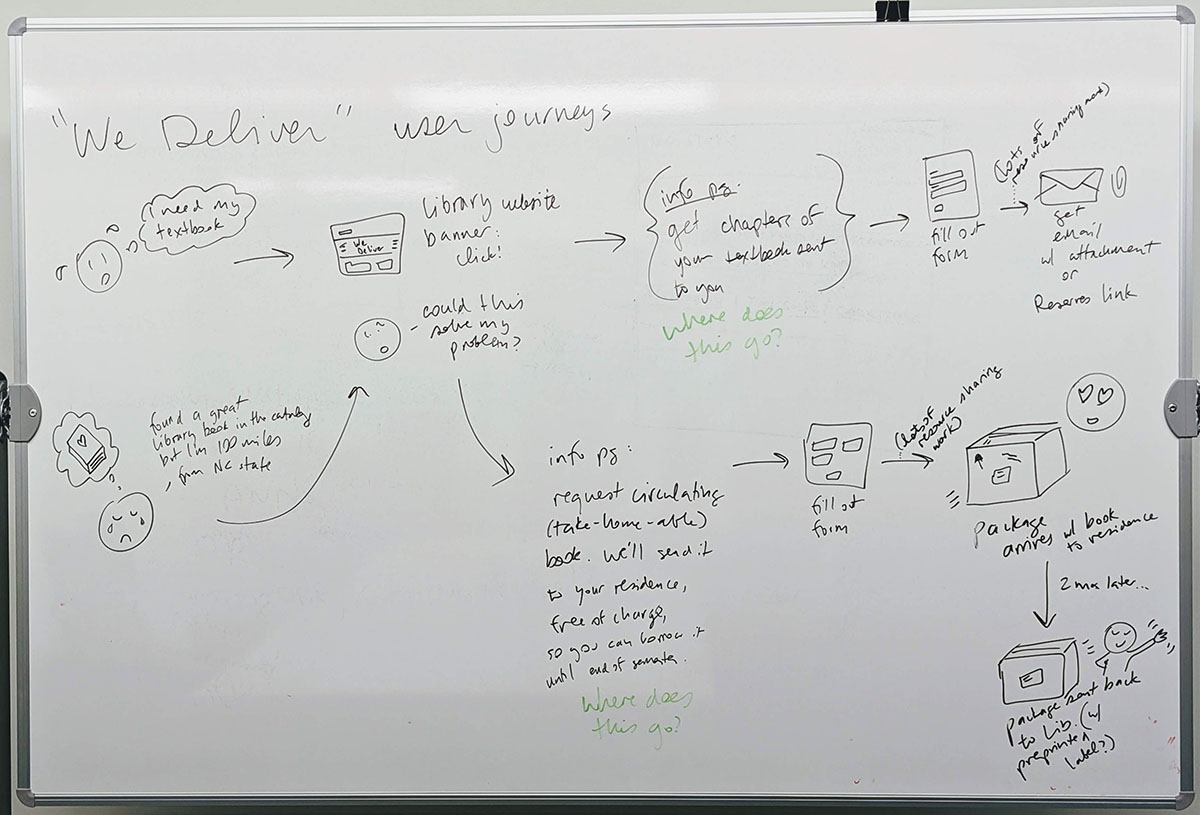 "We Deliver" user journeys
I need my
textbook
We
Deliver
library website
banner:
click!
could this
solve my
problem?
info pg.
get chapters of
your textbook sent
to you
where does
this go?
fill out
form
(lots of
resource sharing
get
email
w/ attachment
or
Reserves link
found a great
library book in the catalog
but I'm 100 miles
from NC state
info pg:
request circulating
(take-home-able)
book. we'll send it
to your residence,
free of charge,
so you can borrow it
until end of semester.
where does
this go?
fill out
form
(lots of
resource sharing
work)
package
arrives w/ book
to residence
2 mos later...
package sent back
to Lib. (w/
preprinted
label?)